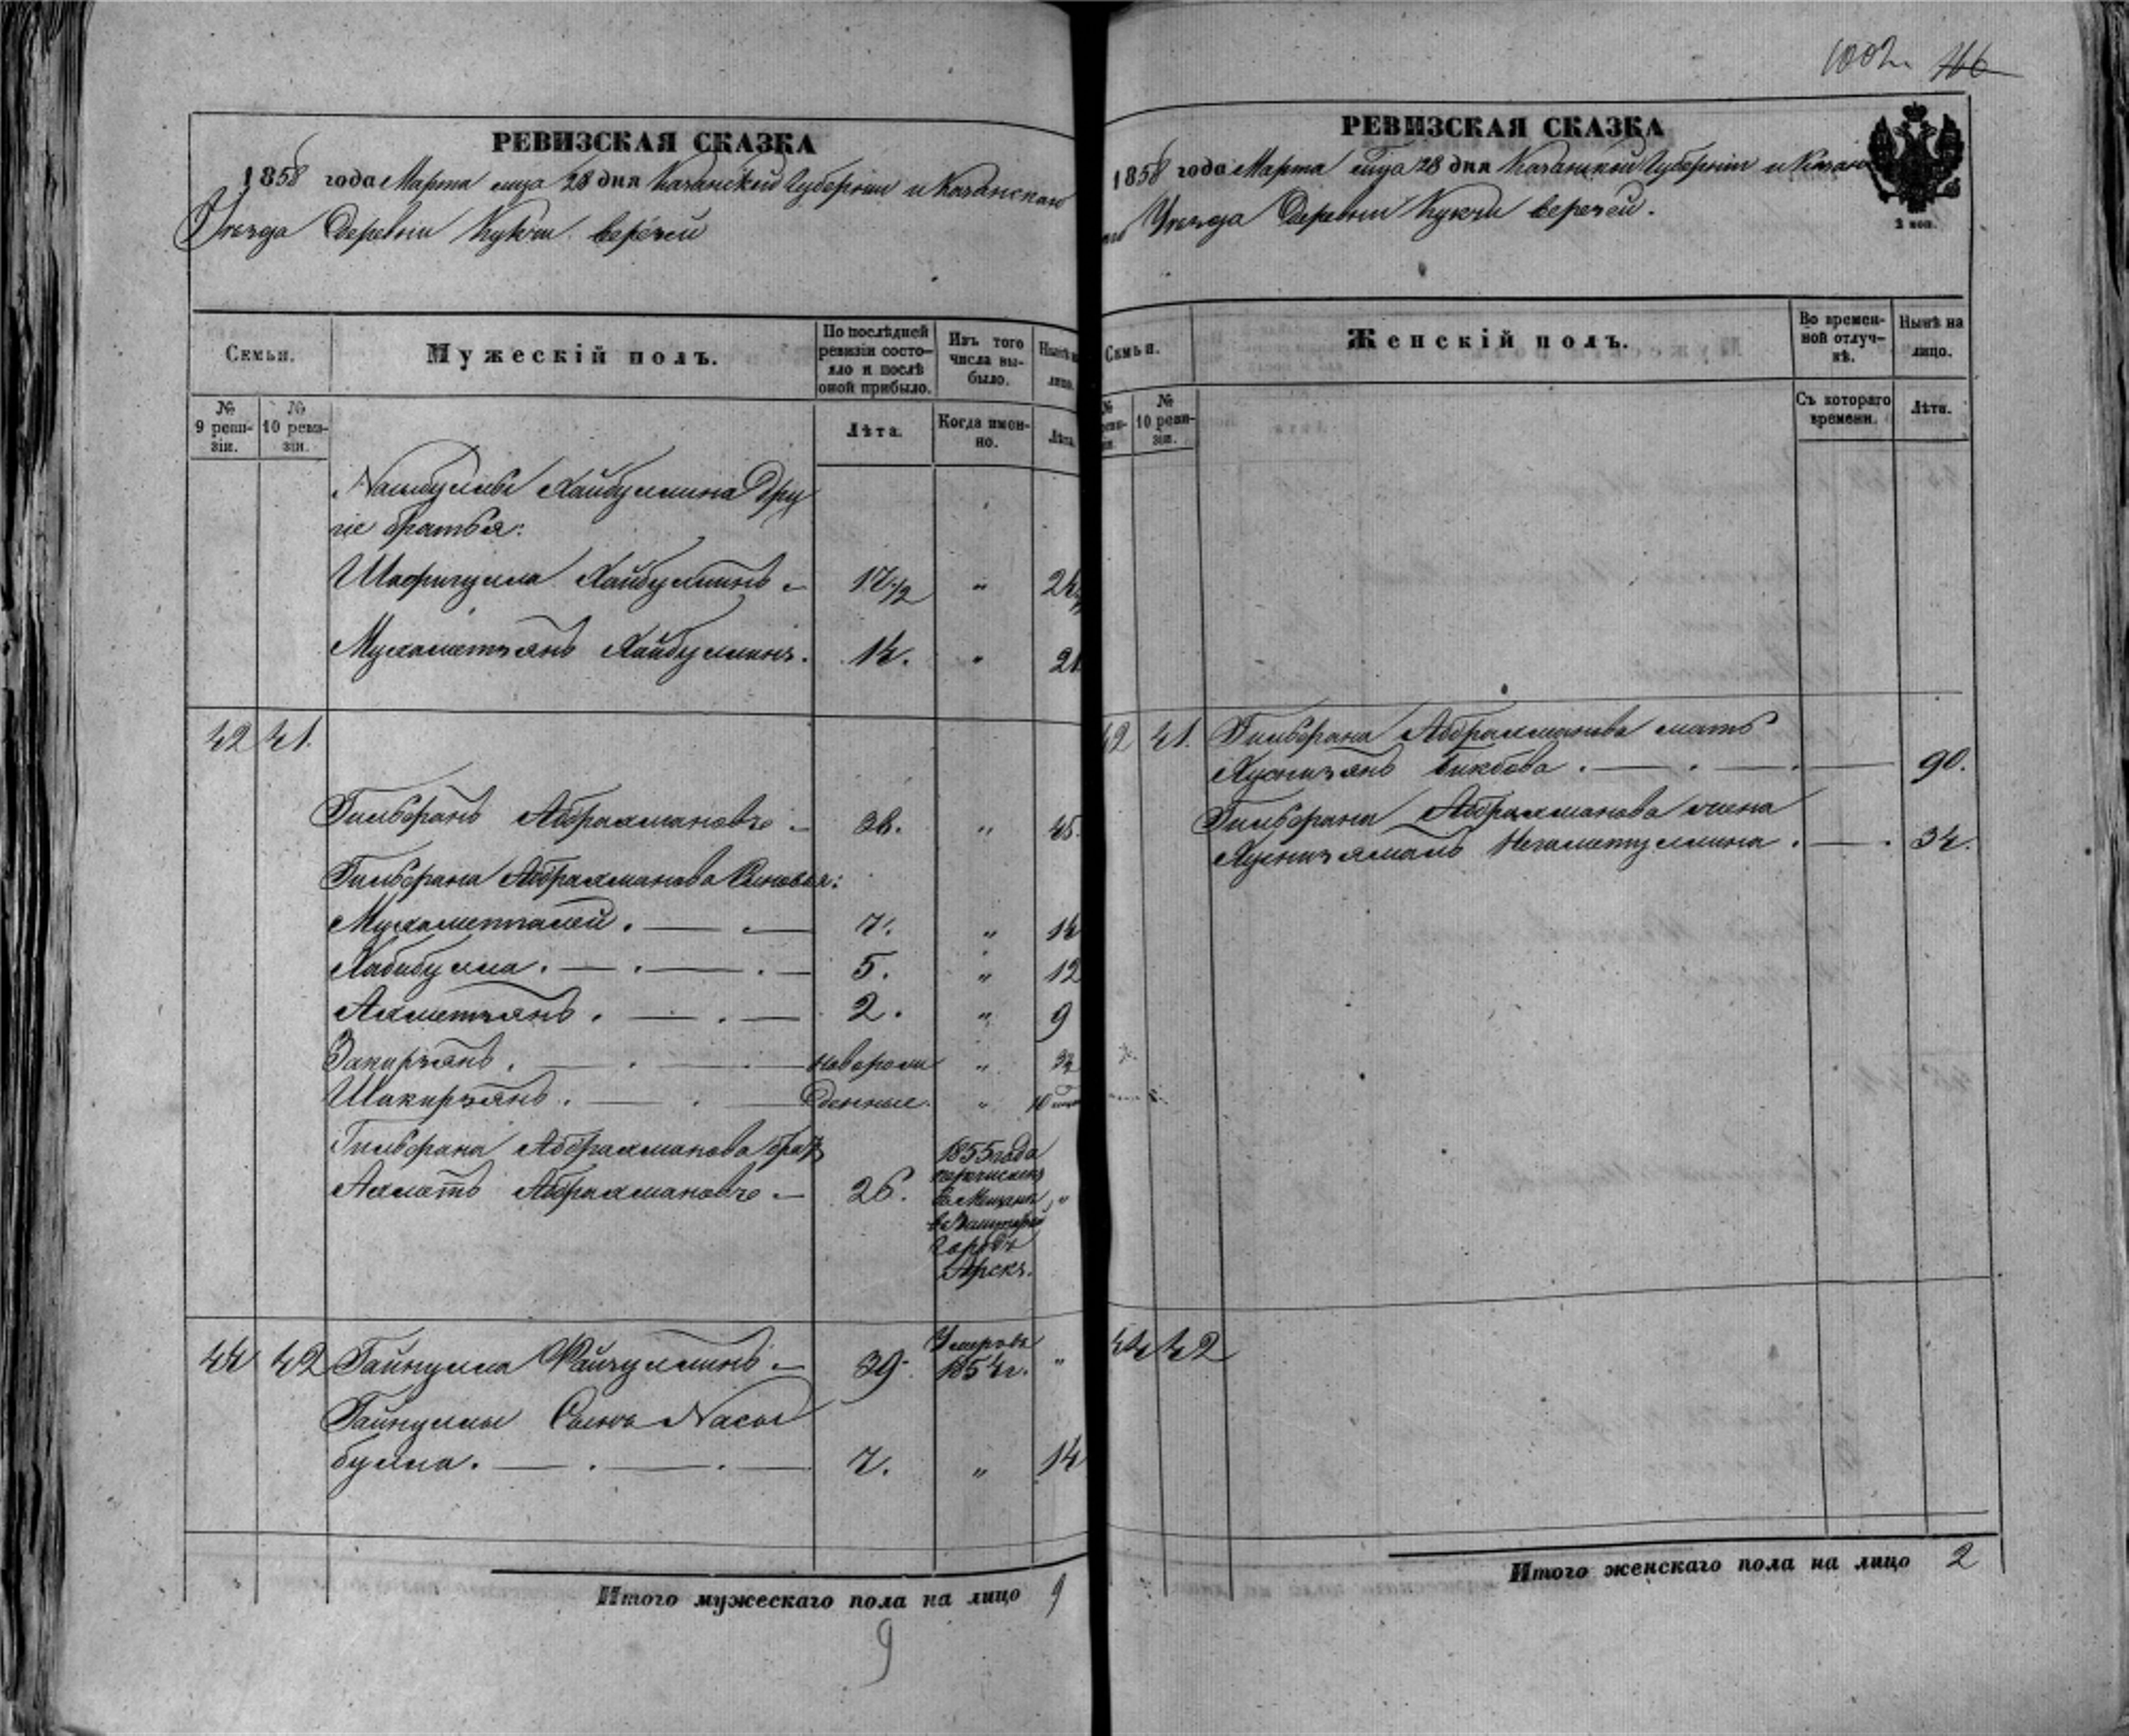 1002
166
РЕВИЗСКАЯ СКАЗКА
1858 года Марта мца 28 дня Казанской Губернии и Казанскаго
Уезда Деревни Кукчи верезей
Семьи.
Мужескій полъ.
По послѣдней ревизіи состояло и послѣ оной прибыло.
Изъ того числа выбыло.
Нынѣ на лицо.
№ 9 ревизіи.
№ 10 ревизіи.
Лѣта.
Когда именно.
Лѣта.
Хайбуллина Дру
гіе братья:
Шафигулла Хайбуллинъ 17 1/2 „ 24
Мухаметзянъ Хайбуллинъ. 14. „ 21
42 41.
Гильфанъ Абдрахмановъ 38. „ 45.
Гильфана Абдрахманова Сыновья:
Мухаметгалей. 7. „ 14
Хабибулла. 5. „ 12
Ахметзянъ. 2. „ 9
Закирзянъ. новорож „
Шакирзянъ. денные. „ 10
Гильфана Абдрахманова братъ
Ахметъ Абдрахмановъ 26. „
1855 года
перечисленъ
въ Мещане
въ Заштатный
городъ
Арскъ.
44 42 Гайнулла Файзуллинъ 39. Умеръ въ 1854 г. „
Гайнуллы Сынъ Насы
булла. 7. „ 14
Итого мужескаго пола на лицо 9
9
РЕВИЗСКАЯ СКАЗКА
1858 года Марта мца 28 дня Казанской Губерніи и Казанска
го Уезда Деревни Кукчи верезей.
2 коп.
Семьи.
Женскій полъ.
Во временной отлучкѣ.
Нынѣ на лицо.
№ ревизіи.
№ 10 ревизіи.
Съ котораго времени.
Лѣта.
42 41. Гильфана Абдрахманова мать
Хуснизянъ Бикбова. 90.
Гильфана Абдрахманова жена
Хуснизямалъ Негаметуллина. 34.
44 42
Итого женскаго пола на лицо 2